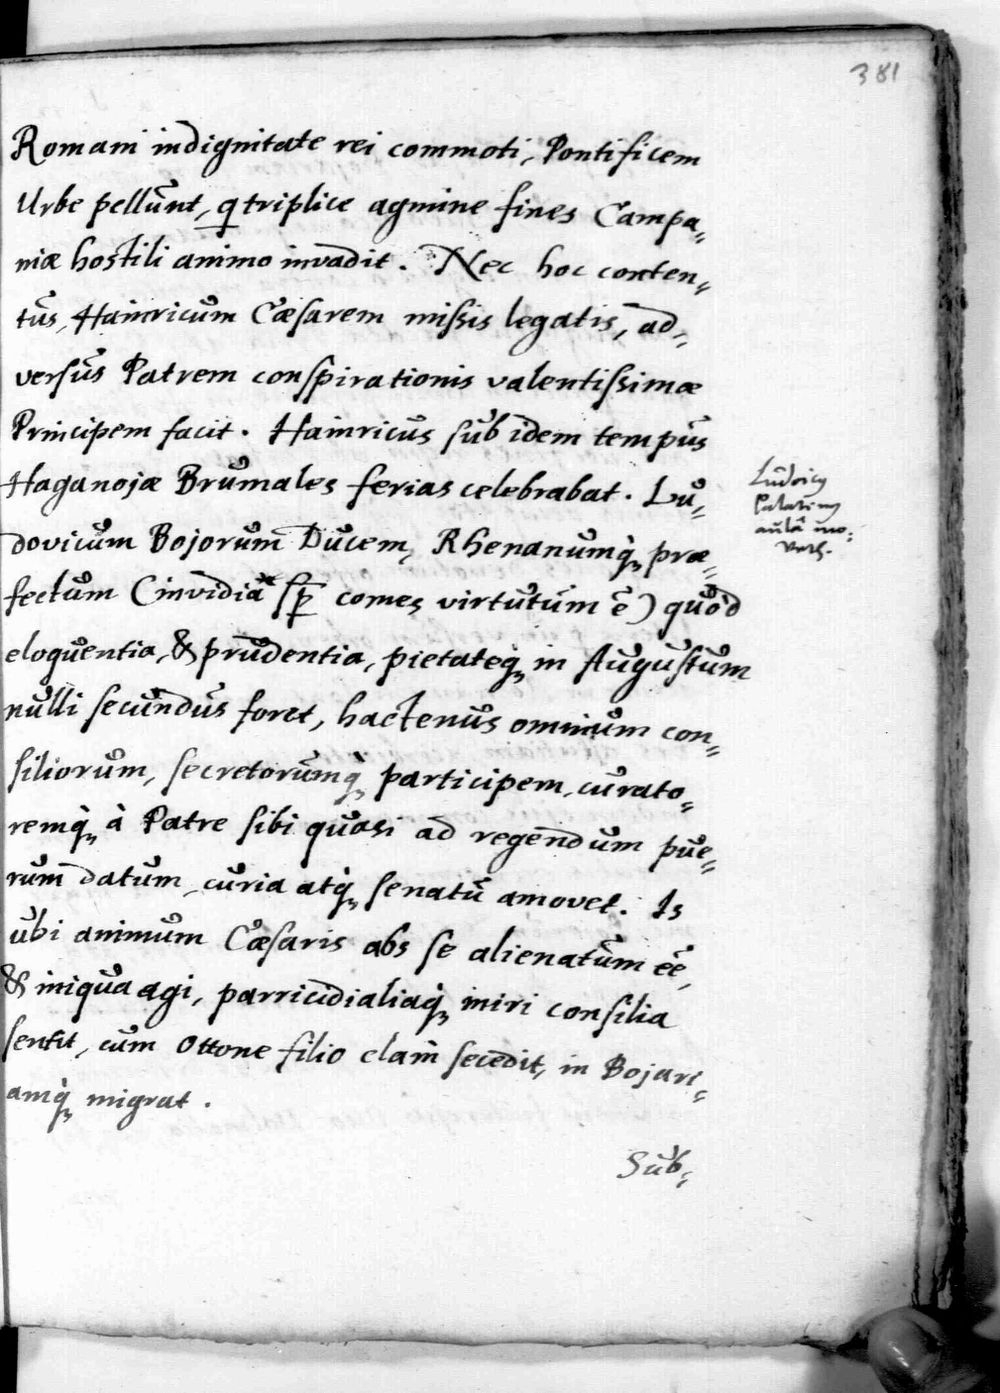 381
Romani indignitate rei commoti, Pontificem
Urbe pellunt, q triplice agmine fines Campa„
niæ hostili animo invadit. Nec hoc conten„
tus, Hainricum Cæsarem missis legatis, ad„
versus Patrem conspirationis valentissimæ
Principem facit. Hainricus sub idem tempus
Haganojæ Brumales ferias celebrabat. Lu„
dovicum Bojorum Ducem, Rhenanumq̀ præ„
fectum (invidia sp comes virtutum ē) quòd
eloquentia, & prudentia, pietateq̀ in Augustum
nulli secundus foret, hactenus omnium con„
siliorum, secretorumq̀ participem, curato„
remq̀ à Patre sibi quasi ad regendum pue„
rum datum, curia atq̀ senatū amovet. Is
ubi animum Cæsaris abs se alienatum ēē,
& iniqua agi, parricidialiaq̀ iniri consilia
sentit, cum Ottone filio clam secedit, in Bojari„
amq̀ migrat.
Sub„
Ludoicus
Palatinus
aulā mo„
veth.